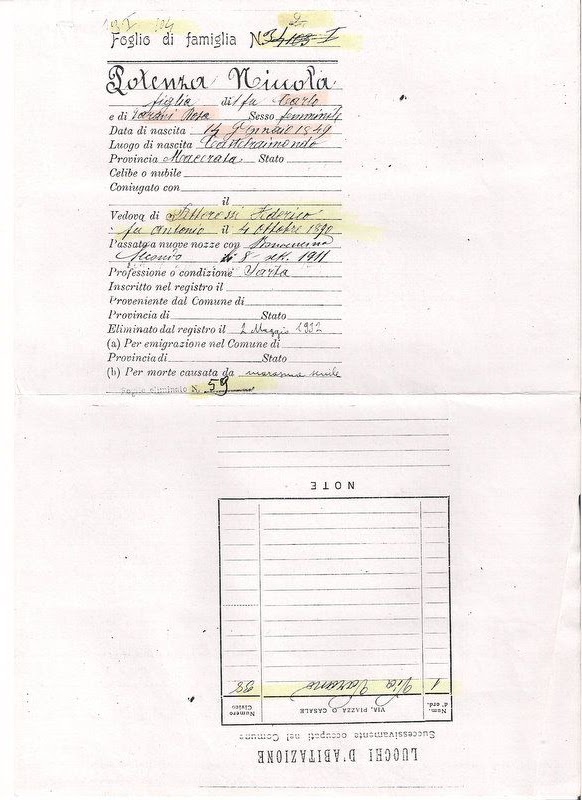 Foglio di famiglia N. 2
Potenza Niccola
figlia di fu Carlo
e di Rosa Sesso femminile
Data di nascita 14 Gennaio 1849
Luogo di nascita Castelraimondo
Provincia Macerata Stato
Celibe o nubile
Coniugato con
il
Vedova di Federico
fu Antonio il 4 Ottobre 1890
Passata a nuove nozze con
di 8 1911
Professione o condizione Sarta
Inscritto nel registro il
Proveniente dal Comune di
Provincia di Stato
Eliminato dal registro il 2 Maggio 1932
(a) Per emigrazione nel Comune di
Provincia di Stato
(b) Per morte causata da marasma senile
Foglio eliminato N. 59
NOTE
LUOGHI D'ABITAZIONE
Successivamente occupati nel Comune
Num. d'ord. VIA, PIAZZA O CASALE Numero Civico
1 Via